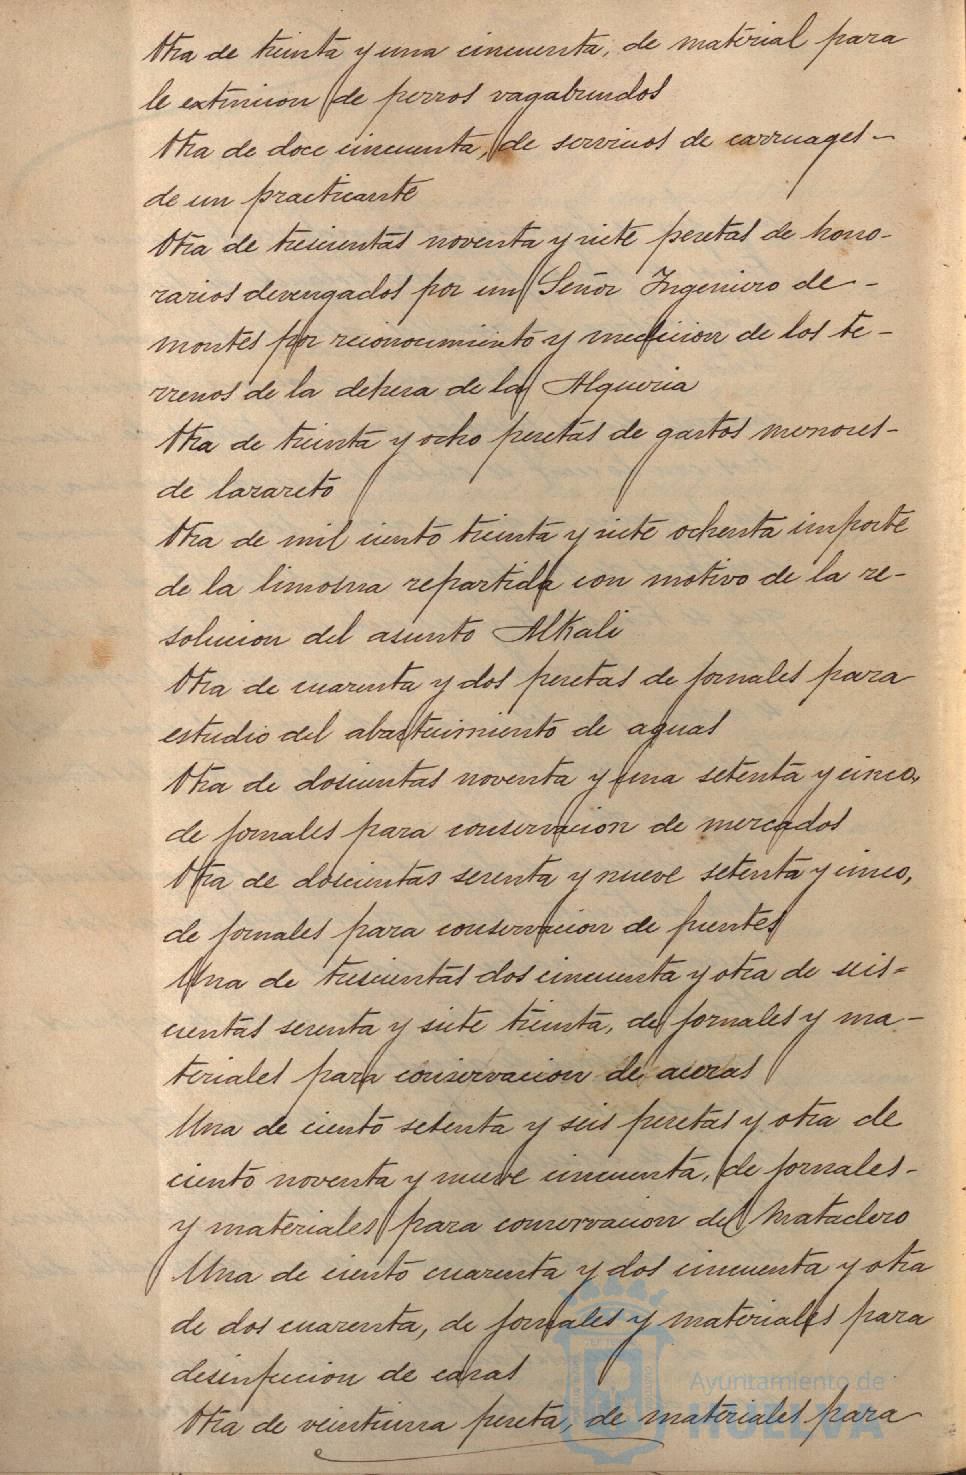 Otra de treinta y una cincuenta, de material para
le extincion de perros vagabundos
Otra de doce cincuenta, de servicios de carruages-
de un practicante
Otra de trescientas noventa y siete pesetas de hono-
rarios devengados por un Señor Ingeniero de-
montes por reconocimiento y medicion de los te-
rrenos de la dehesa de la Alqueria
Otra de treinta y ocho pesetas de gastos menores-
de lazareto
Otra de mil ciento treinta y siete ochenta importe
de la limosna repartida con motivo de la re-
solucion del asunto Alkali
Otra de cuarenta y dos pesetas de jornales para
estudio del abastecimiento de aguas
Otra de doscientas noventa y una setenta y cinco,
de jornales para conservacion de mercados
Otra de doscientas sesenta y nueve setenta y cinco,
de jornales para conservacion de fuentes
Una de trescientas dos cincuenta y otra de seis=
cientas sesenta y siete treinta, de jornales y ma-
teriales para conservacion de aceras
Una de ciento setenta y seis pesetas y otra de
ciento noventa y nueve cincuenta, de jornales-
y materiales para conservacion del Matadero
Una de ciento cuarenta y dos cincuenta y otra
de dos cuarenta, de jornales y materiales para
desinfeccion de casas
Otra de veintiuna peseta, de materiales para
Ayuntamiento de
HUELVA